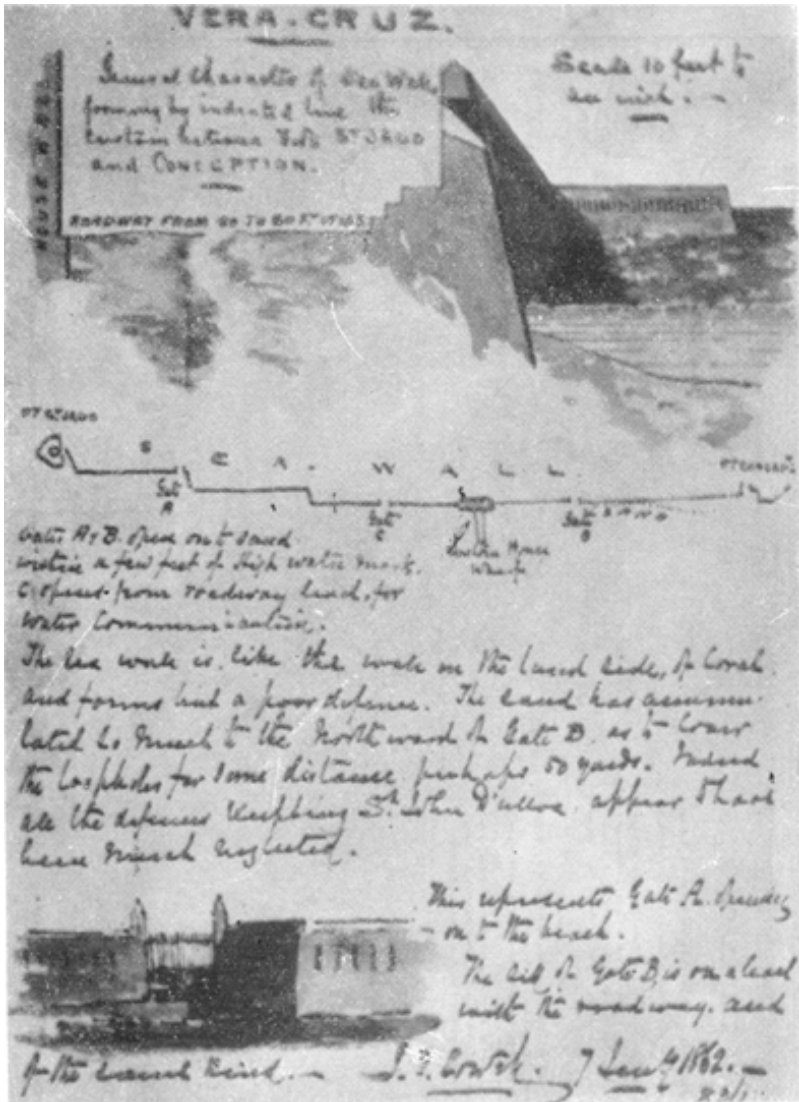 VERA-CRUZ.
General Character of Sea Wall,
forming by indented line the
curtain between Forts ST JAGO
and CONCEPTION.
Scale 10 feet to
an inch.
HOUSE
ROADWAY FROM 20 TO 80 FT WIDE
FT ST JAGO
SEA-WALL
FT
Gate
A
Gate
C
Gate
B
SAND
Custom House
Wharf
Gates A & B. open on to sand
within a few feet of high water mark.
C. opens from roadway lead. for
water Communication.
The sea wall is, like the wall on the land side, of Coral
and forms but a poor defence. The sand has accumu-
lated so much to the Northward of Gate B. as to cover
the loopholes for some distance perhaps 50 yards. Indeed
all the defences St. John D'ulloa appear to have
been much neglected.
This represents Gate A. opening
on to the beach.
The sill of Gate B, is on a level
with the roadway. and
of the same kind.
7 Jany 1862.